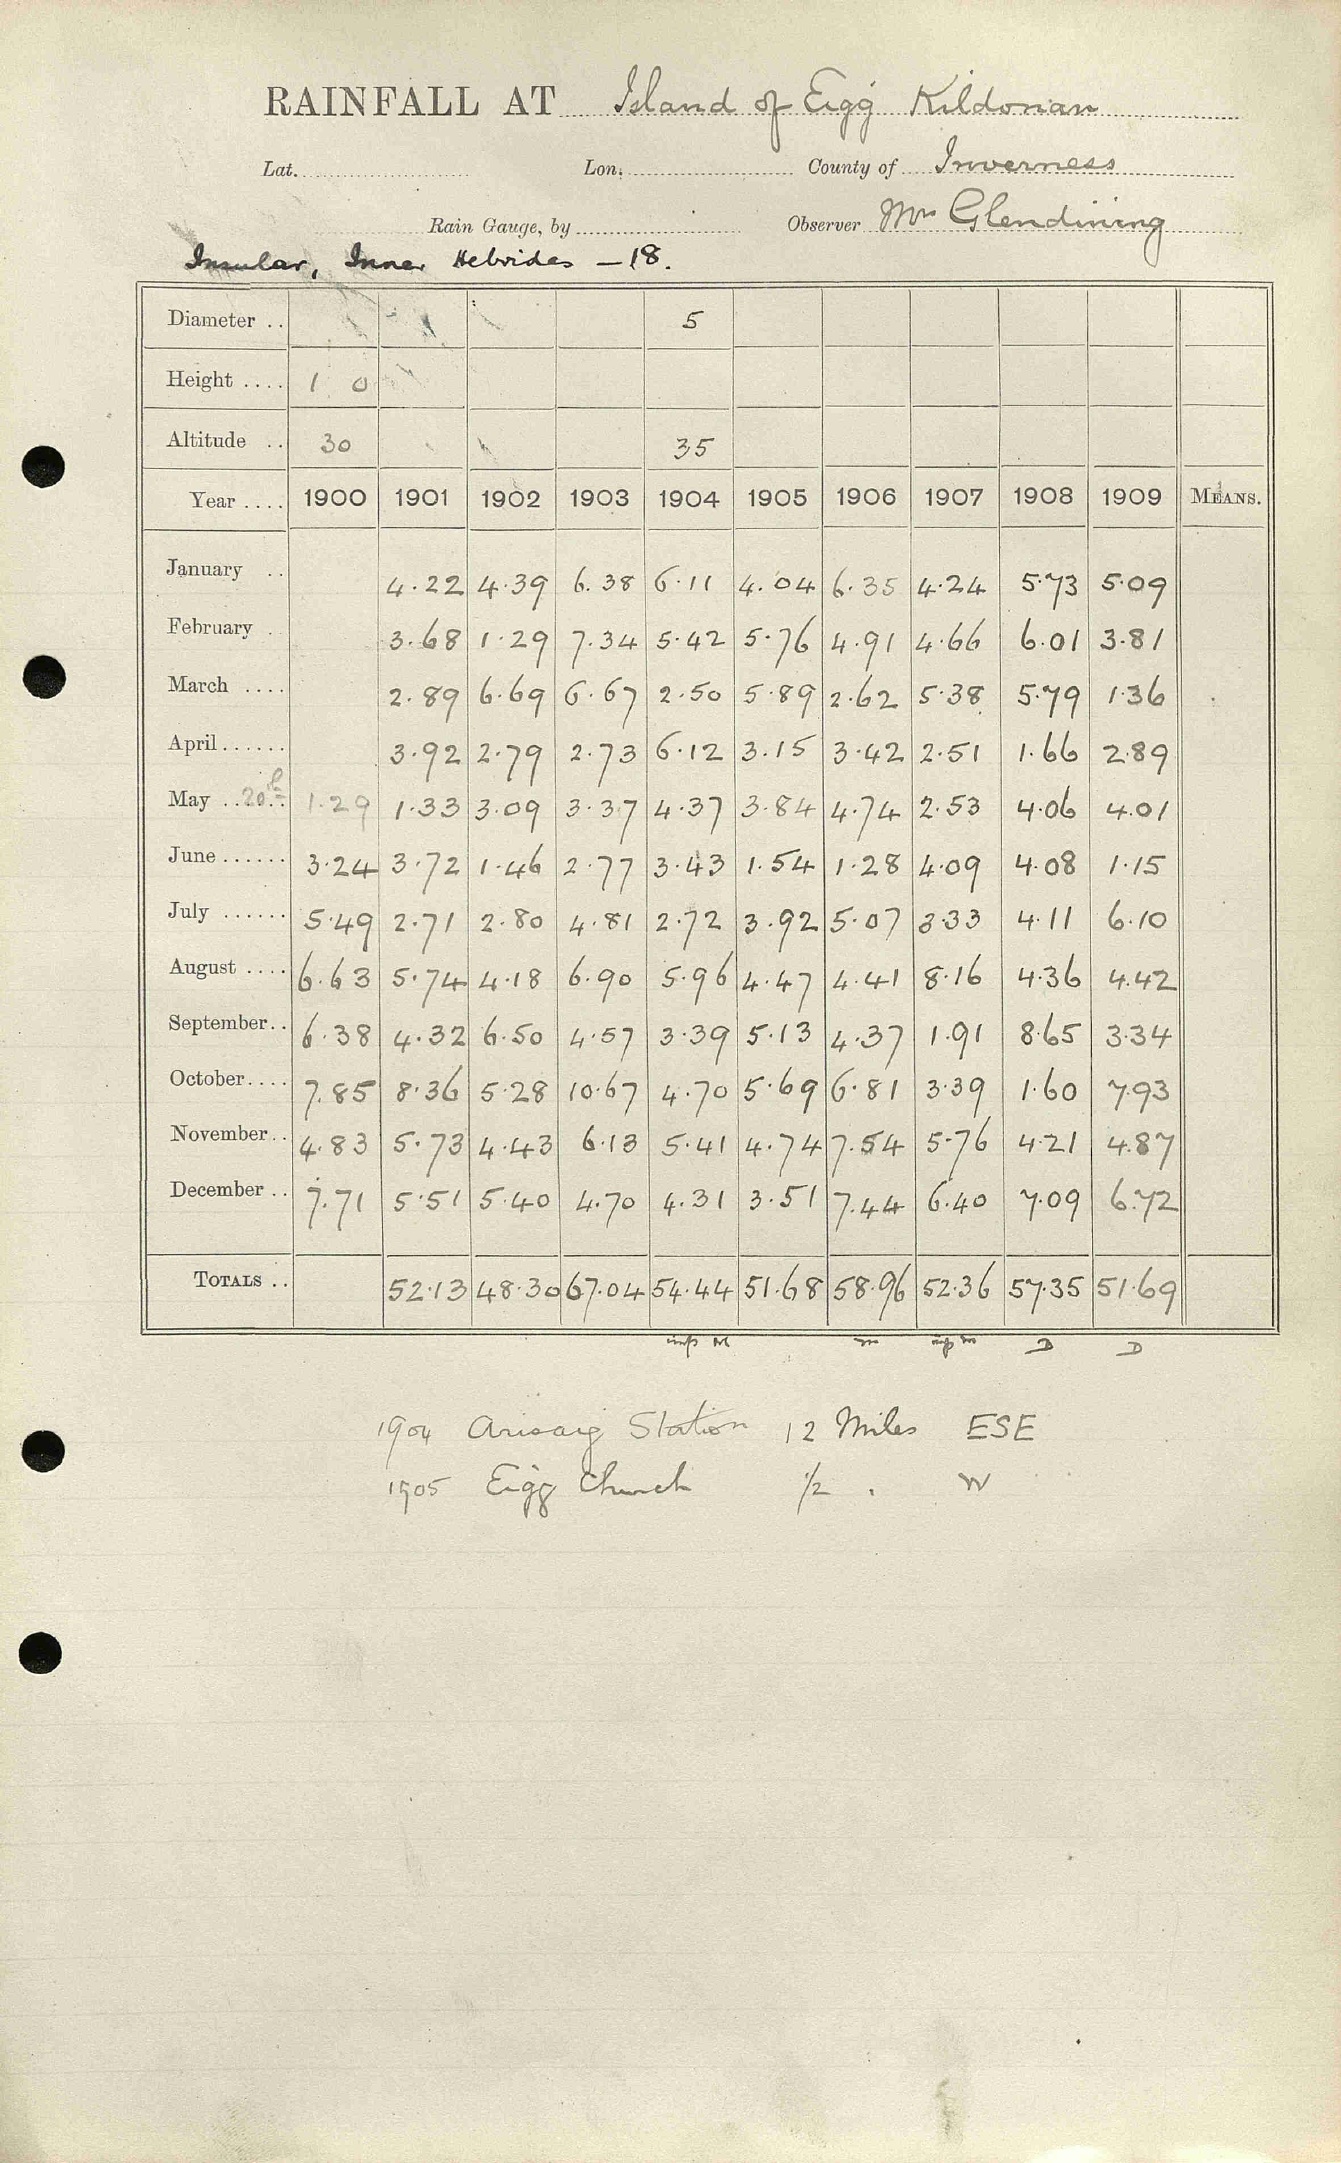 RAINFALL AT Island of Eigg Kildonan
Lat. Lon. County of Inverness
Rain Gauge, by Observer Mrs Glendining
Insular, Inner Hebrides - 18.
Diameter .. 5
Height .... 1 0
Altitude .. 30 35
Year .... 1900 1901 1902 1903 1904 1905 1906 1907 1908 1909 MEANS.
January .. 4.22 4.39 6.38 6.11 4.04 6.35 4.24 5.73 5.09
February . 3.68 1.29 7.34 5.42 5.76 4.91 4.66 6.01 3.81
March .... 2.89 6.69 6.67 2.50 5.89 2.62 5.38 5.79 1.36
April ...... 3.92 2.79 2.73 6.12 3.15 3.42 2.51 1.66 2.89
May .. 20th 1.29 1.33 3.09 3.37 4.37 3.84 4.74 2.53 4.06 4.01
June ...... 3.24 3.72 1.46 2.77 3.43 1.54 1.28 4.09 4.08 1.15
July ...... 5.49 2.71 2.80 4.81 2.72 3.92 5.07 3.33 4.11 6.10
August .... 6.63 5.74 4.18 6.90 5.96 4.47 4.41 8.16 4.36 4.42
September .. 6.38 4.32 6.50 4.57 3.39 5.13 4.37 1.91 8.65 3.34
October .... 7.85 8.36 5.28 10.67 4.70 5.69 6.81 3.39 1.60 7.93
November .. 4.83 5.73 4.43 6.13 5.41 4.74 7.54 5.76 4.21 4.87
December .. 7.71 5.51 5.40 4.70 4.31 3.51 7.44 6.40 7.09 6.72
TOTALS .. 52.13 48.30 67.04 54.44 51.68 58.96 52.36 57.35 51.69
m D D
1904 Arisaig Station 12 Miles ESE
1905 Eigg Church 1/2 . W